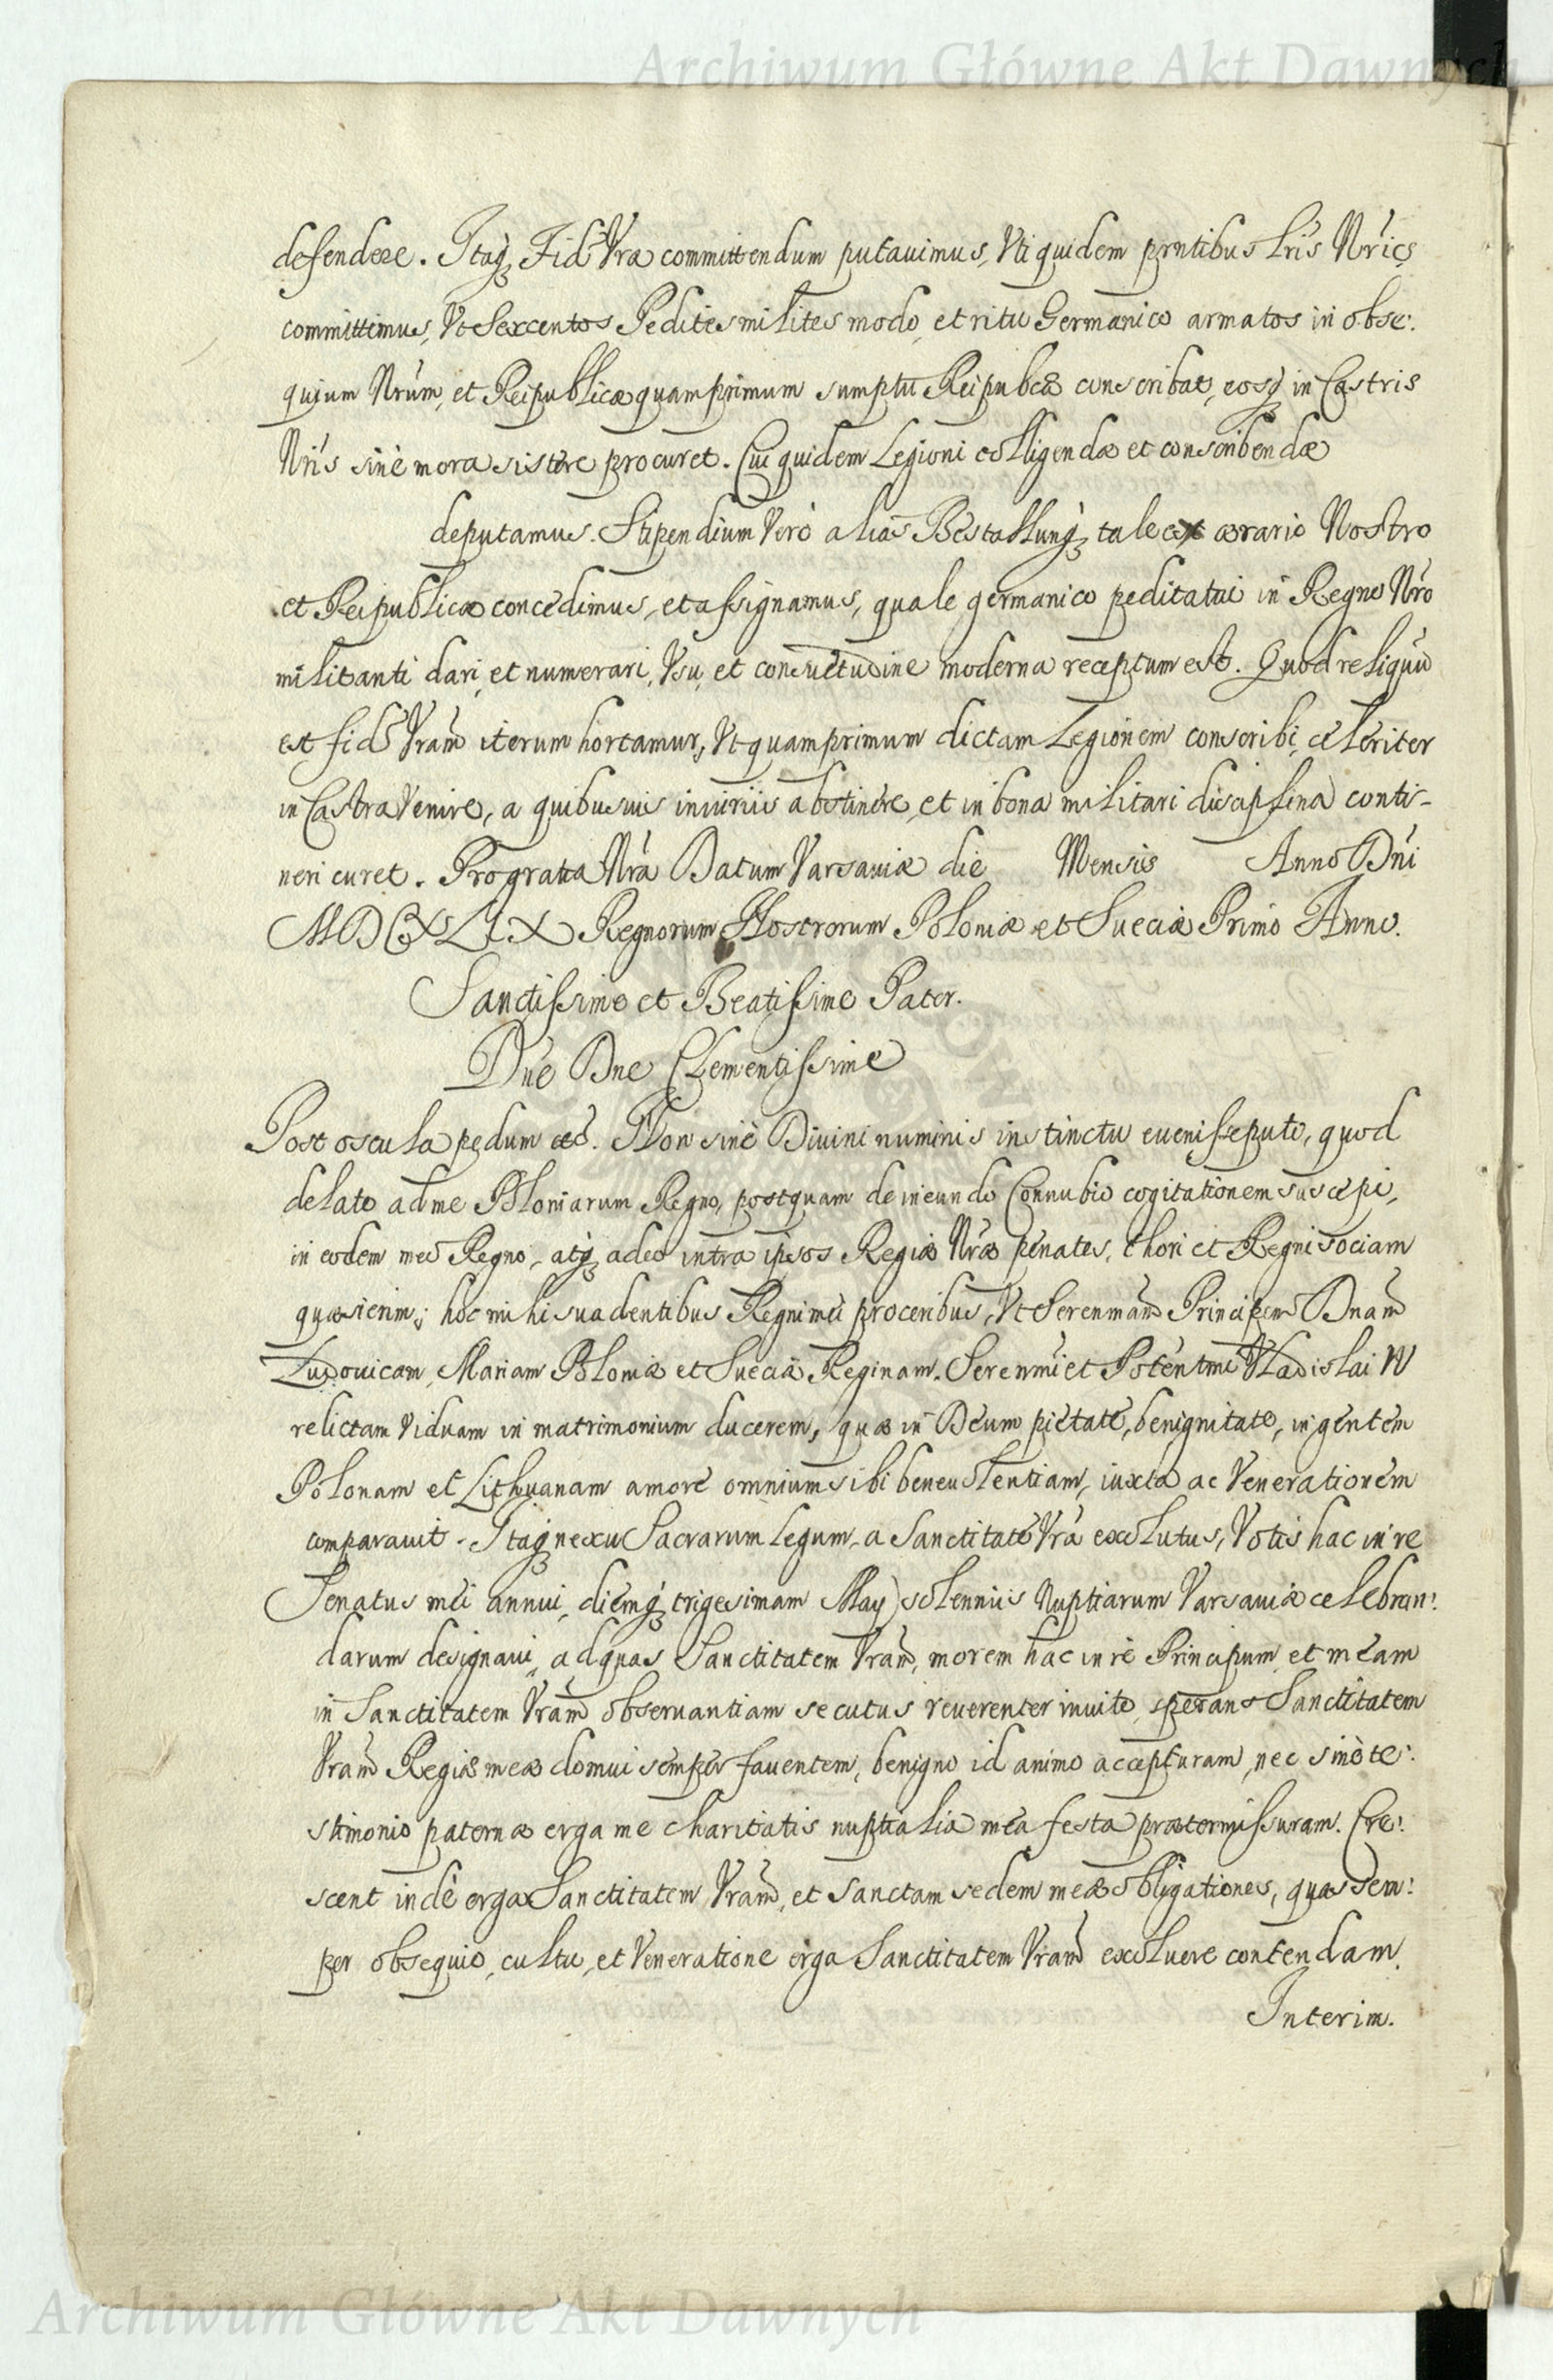 Archiwum Główne Akt Dawnych
defendere. Itaq; Fid Vra committendum putauimus, Vti quidem prntibus Lris Nris
committimus, Vt Sexcentos Pedites milites modo, et ritu Germanico armatos in obse:
quium Nrum, et Reipublicæ quamprimum sumptu Reipubcæ conscribat, eosq; in Castris
Nris sine mora sistere procuret. Cui quidem Legioni colligendæ et conscribendæ
deputamus. Stipendium Vero alias Bestallung, tale ex ærario Nostro
et Reipublicæ concedimus, et assignamus, quale germanico peditatui in Regno Nro
militanti dari, et numerari, Vsu, et consuetudine moderna receptum est. Quod reliquu
est fid Vram iterum hortamur, Vt quamprimum dictam Legionem conscribi, celeriter
in Castra Venire, a quibusuis iniuriis abstinere, et in bona militari disciplina conti-
neri curet. Pro gratia Nra Datum Varsauiæ die Mensis Anno Dni
MDCXLIX Regnorum Nostrorum Poloniæ et Sueciæ Primo Anno.
Sanctissime et Beatissime Pater.
Dne Dne Clementissime
Post oscula pedum etc. Non sine Diuini numinis instinctu euenisse puto, quod
delato ad me Poloniarum Regno, postquam de ineundo Connubio cogitationem suscepi,
in eodem meo Regno, atq; adeo intra ipsos Regiæ Nræ penates, thori et Regni sociam
quæsierim; hoc mihi suadentibus Regni mei proceribus, Vt Serenmam Principem Dnam
Ludouicam Mariam Poloniæ et Sueciæ Reginam, Serenmi et Potentmi Vladislai IV
relictam Viduam in matrimonium ducerem, quæ in Deum pietate, benignitate, in gentem
Polonam et Lithuanam amore omnium sibi beneuolentiam, iuxta ac Venerationem
comparauit. Itaq; nexu Sacrarum legum, a Sanctitate Vra exolutus, Votis hac in re
Senatus mei annui, diemq; trigesimam May solenniis Nuptiarum Varsauiæ celebran:
darum designaui, ad quas Sanctitatem Vram, morem hac in re Principum, et meam
in Sanctitatem Vram obseruantiam secutus reuerenter inuito, sperans Sanctitatem
Vram Regiæ meæ domui semper fauentem, benigno id animo accepturam, nec sine te:
stimonio paternæ erga me charitatis nuptialia mea festa prætermissuram. Cre:
scent inde erga Sanctitatem Vram, et Sanctam sedem meæ obligationes, quas sem:
per obsequio, cultu, et Veneratione erga Sanctitatem Vram exoluere contendam.
Interim.
Archiwum Główne Akt Dawnych